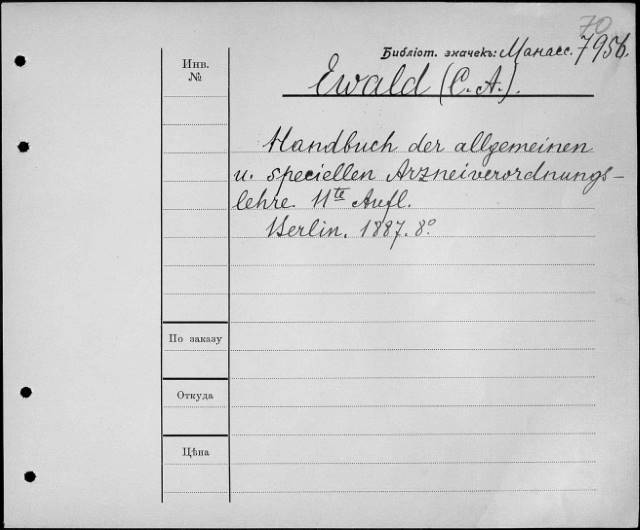 70
Библіот. значекъ: Манасс. 7956.
Инв. №
Ewald (C. A.).
Handbuch der allgemeinen
u. speciellen Arzneiverordnungs-
lehre. 11te Aufl.
Berlin. 1887. 8º
По заказу
Откуда
Цѣна